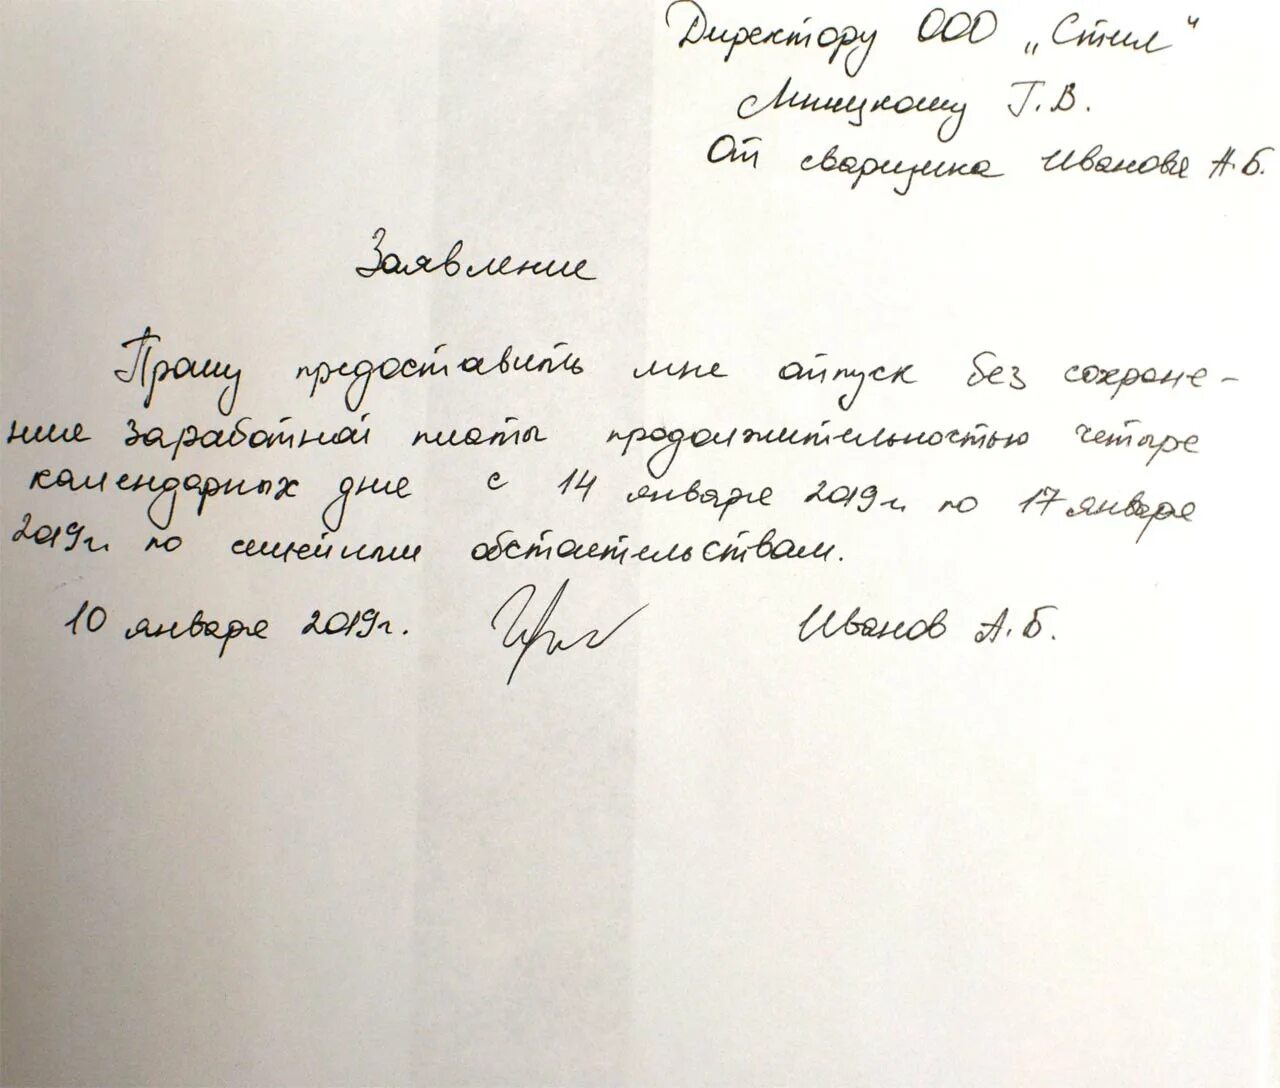 Директору ООО „Стил“
Мицкому Г.В.
От сварщика Иванова А.Б.
Заявление
Прошу предоставить мне отпуск без сохране-
ние заработной платы продолжительностью четыре
календарных дне с 14 января 2019г. по 17 января
2019г. по семейным обстоятельствам.
10 января 2019г. Иванов А.Б.